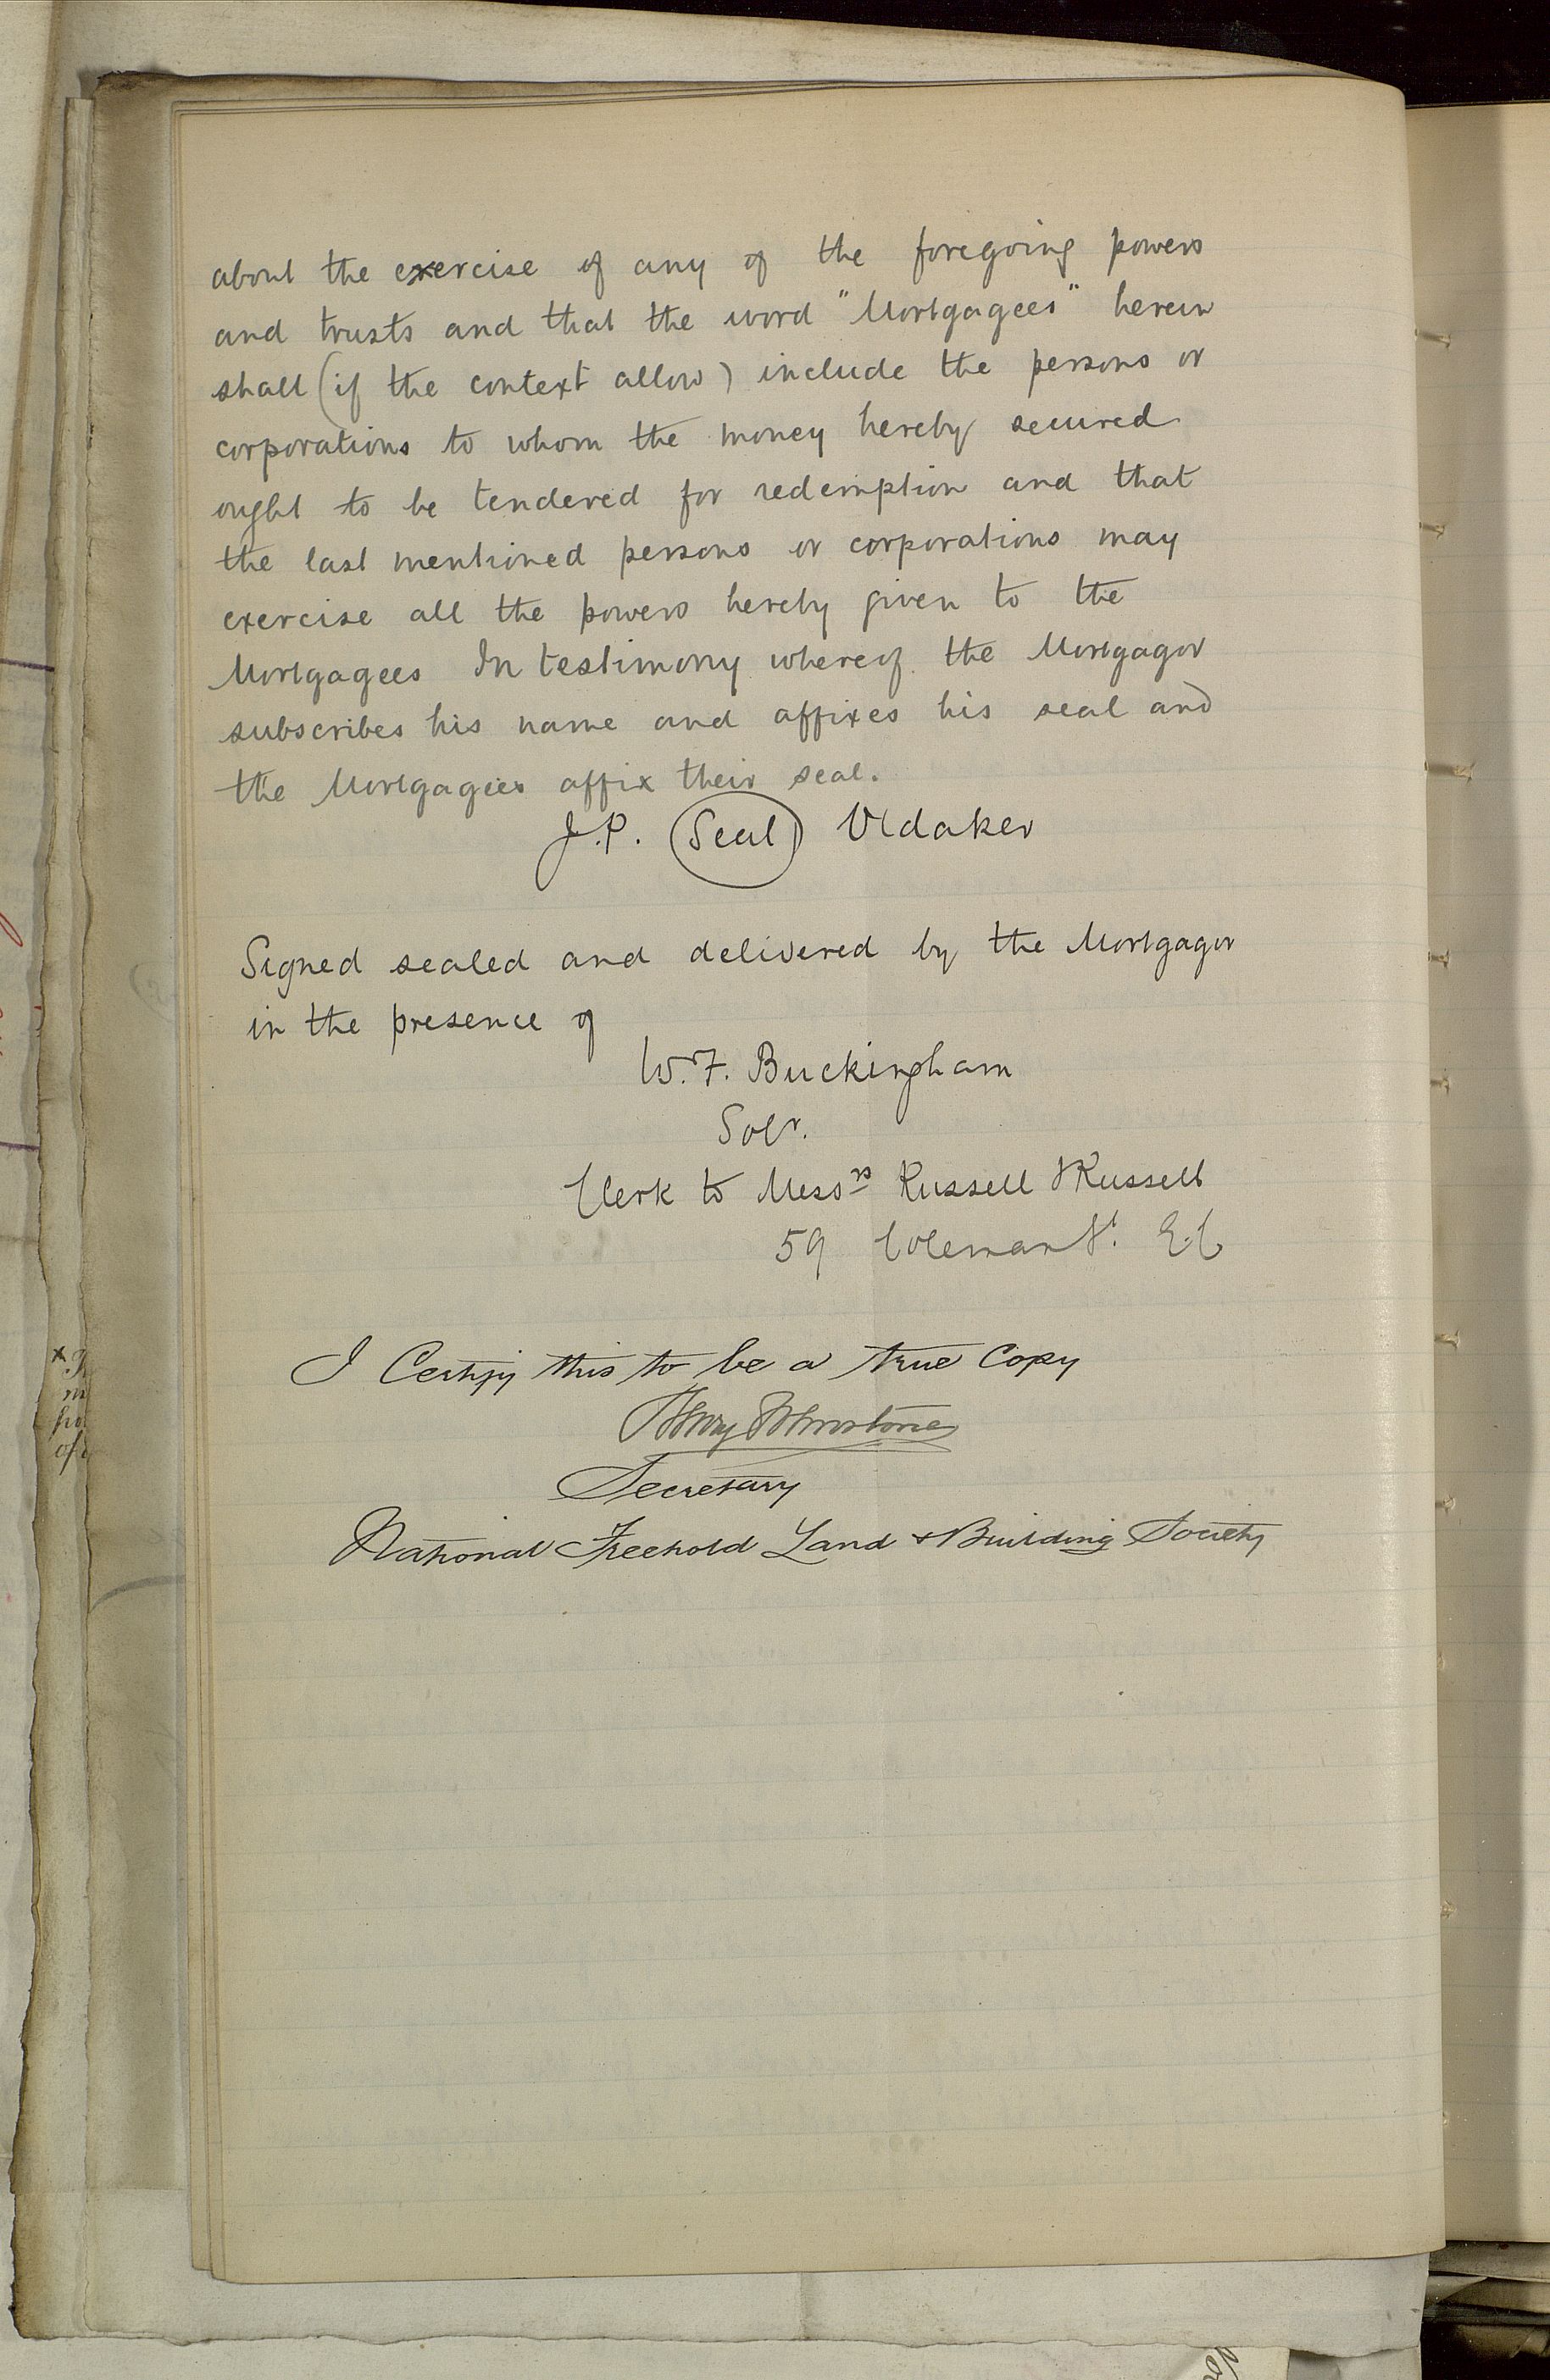 about the exercise of any of the foregoing powers
and trusts and that the word "Mortgagees" herein
shall (if the context allow) include the persons or
corporations to whom the money hereby secured
ought to be tendered for redemption and that
the last mentioned persons or corporations may
exercise all the powers hereby given to the
Mortgagees In testimony whereof the Mortgagor
subscribes his name and affixes his seal and
the Mortgagees affix their seal.
J.P. (Seal) Oldaker
Signed sealed and delivered by the Mortgagor
in the presence of
W.F. Buckingham
Solr.
Clerk to Messrs Russell & Russell
59 Coleman St. E.C
I Certify this to be a true Copy
Secretary
National Freehold Land & Building Society